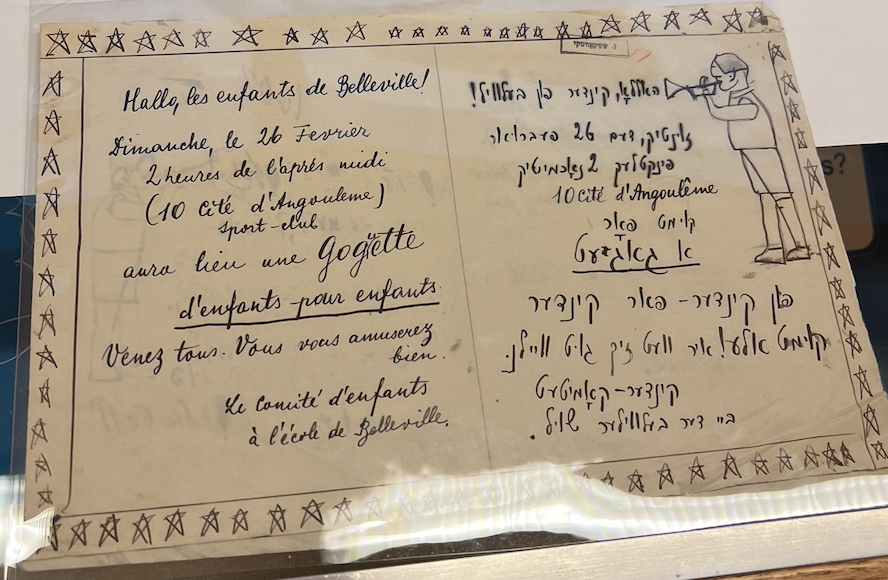 Hallo, les enfants de Belleville!
Dimanche, le 26 Fevrier
2 heures de l'aprés midi
(10 Cité d'Angouleme)
sport-club
aura lieu une Gogüette
d'enfants pour enfants.
Venez tous. Vous vous amuserez
bien.
Le Comité d'enfants
à l'école de Belleville.
האללאָ, קינדער פון בעלוויל!
זונטיק, דעם 26 פעברואר
פינקטלעך 2 נאכמיטיק
10 cité d'Angoulême
קומט פאר
א גאָגעט
פון קינדער-פאר קינדער
קומט אלע! איר וועט זיך גוט וויילן.
קינדער-קאָמיטעט
ביי דער בעלווילער שול.